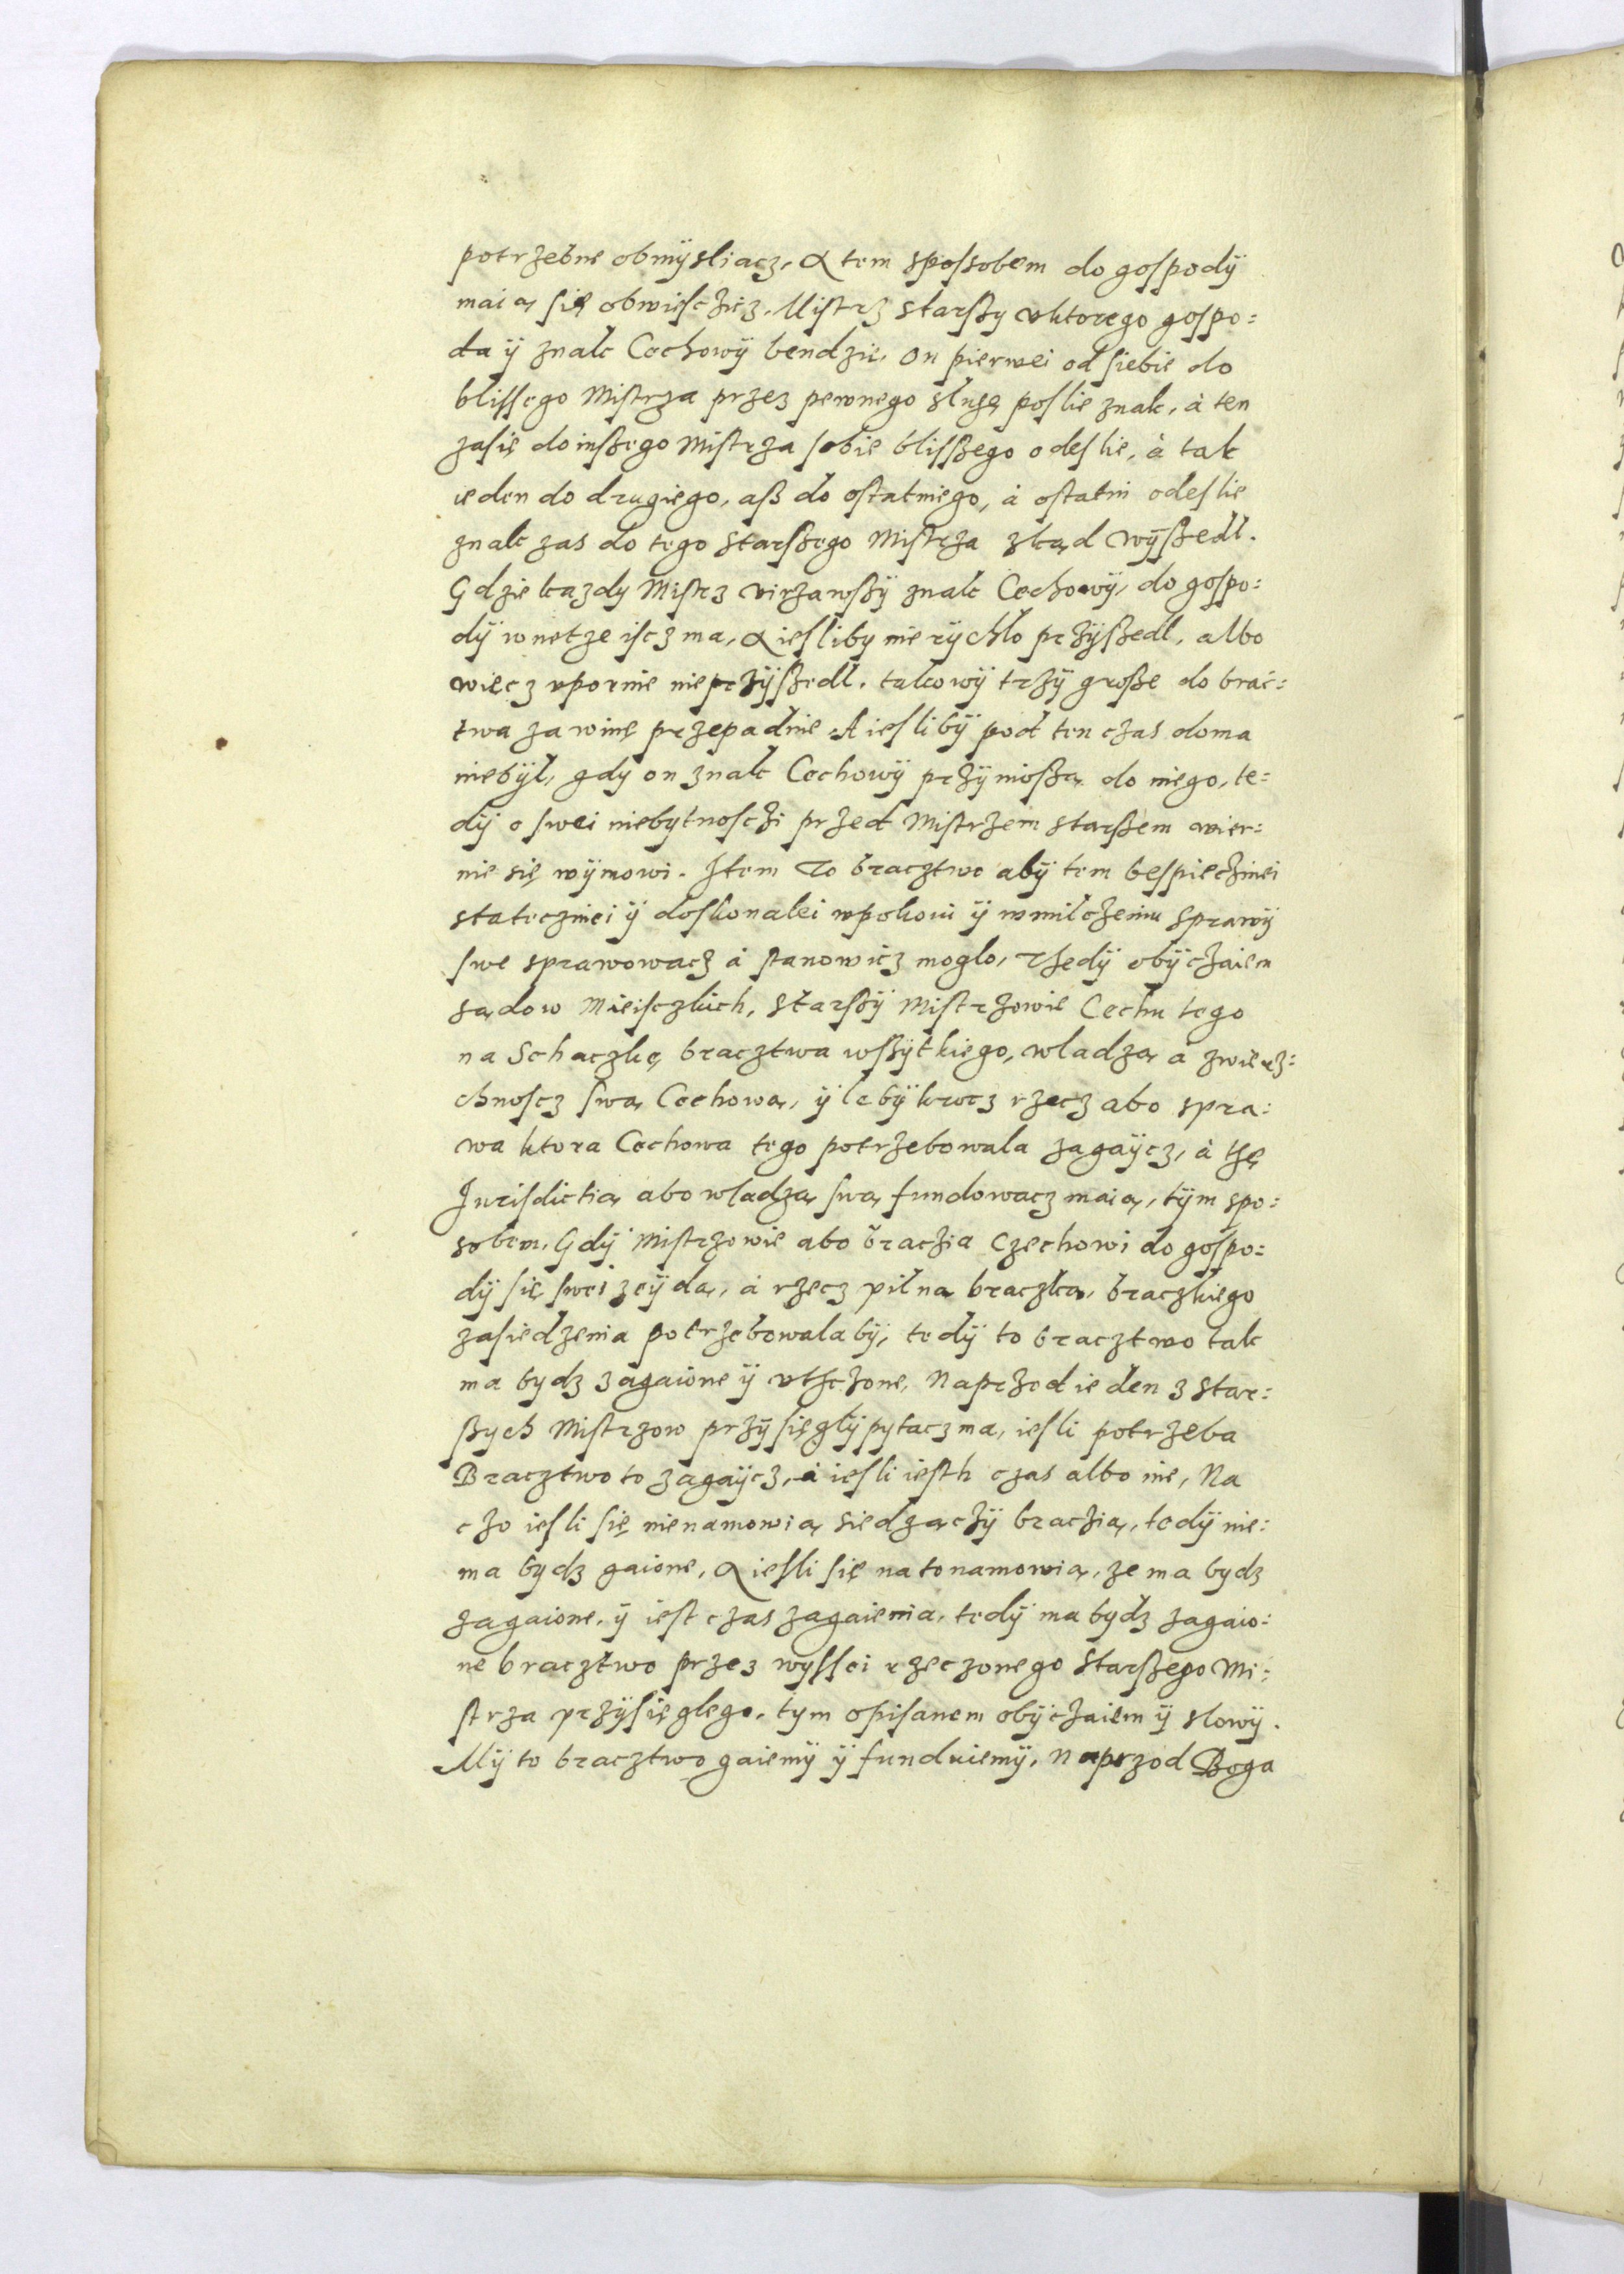 potrzebne obmÿsliacz, A tem spossobem do gospodÿ
maią się obwiesczicz. Mistrz starszy vktorego gospo=
da ÿ znak Cechowÿ bendzie, on pierwei od siebie do
blissego Mistrza przez pewnego slugę poslie znak, à ten
zasię do inszego Mistrza sobie blisszego odeslie, à tak
ieden do drugiego, asz do ostatniego, à ostatni odeslie
znak zas do tego starszego Mistrza zkąd wÿszedl.
Gdzie kazdy Mistrz virzawszÿ znak Cechowÿ, do gospo=
dÿ wnetze iscz ma, A iesliby nie rÿchlo przÿszedl, albo
więcz vpornie nie przÿszedl, takowÿ trzÿ grosze do brac=
twa za winę przepadnie. A ieslibÿ pod ten czas doma
niebÿl, gdy on znak Cechowÿ przÿnioszą do niego, te=
dÿ o swei niebytnosczi przed Mistrzem starszem wier=
nie się wÿmowi. Item To bracztwo abÿ tem bespiecznei
statecznei ÿ doskonalei wpokoiu ÿ wmilczeniu sprawÿ
swe sprawowacz à stanowicz moglo, Thedÿ obÿczaiem
sądow Mieisczkich, starszÿ Mistrzowie Cechu tego
na Schaczkę bracztwa wszÿtkiego, wladzą à zwierz=
chnoscz swą Cechową, ÿlebÿkrocz rzecz abo spra=
wa ktora Cechowa tego potrzebowala zagaÿcz, à thę
Jurisdictią abo wladzą swą fundowacz maią, tÿm spo=
sobem, Gdÿ Mistrzowie abo braczia Czechowi do gospo=
dÿ się swei zeÿdą, à rzecz pilna braczka, braczkiego
zasiedzenia potrzebowalabÿ, tedÿ to bracztwo tak
ma bydz zagaione ÿ vthczone, Naprzod ieden z star=
szych Mistrzow przÿsięglÿ pytacz ma, iesli potrzeba
Bracztwo to zagaÿcz, à iesli iesth czas albo nie, Na
czo iesli się nienamowią siedzączÿ braczią, tedÿ nie=
ma bydz gaione, A iesli się na to namowią, ze ma bydz
zagaione, ÿ iest czas zagaienia, tedÿ ma bydz zagaio=
ne bracztwo przez wyssei rzeczonego Starszego Mi=
strza przÿsięglego, tym opisanem obÿczaiem ÿ slowÿ.
Mÿ to bracztwo gaiemÿ ÿ funduiemÿ, Naprzod Boga